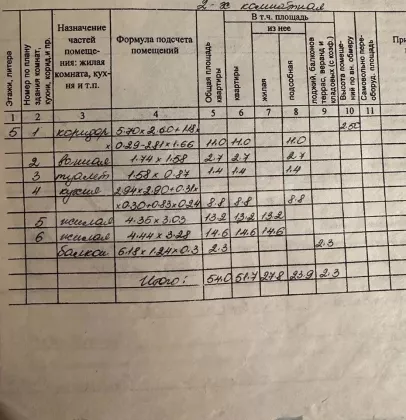 2-х комнатная
Этажи, литера
Номер по плану здания комнат, кухни, корид. и пр.
Назначение частей помеще- ния: жилая комната, кух- ня и т.п.
Формула подсчета помещений
Общая площадь квартиры
В т.ч. площадь
квартиры
из нее
жилая
подсобная
лоджий, балконов террас, веранд и кладовых (с коэф.)
Высота помеще- ний по вн. обмеру
Самовольно пере- оборуд. площадь
1 2 3 4 5 6 7 8 9 10 11
5 1 коридор 5.70×2.60+1.18× 2.50
×0.29-2.81×1.66 11.0 11.0 11.0
2 ванная 1.74×1.58 2.7 2.7 2.7
3 туалет 1.58×0.87 1.4 1.4 1.4
4 кухня 2.94×2.90+0.31×
×0.30+0.83×0.24 8.8 8.8 8.8
5 жилая 4.36×3.03 13.2 13.2 13.2
6 жилая 4.44×3.28 14.6 14.6 14.6
балкон 6.18×1.24×0.3 2.3 2.3
Итого: 54.0 51.7 27.8 23.9 2.3